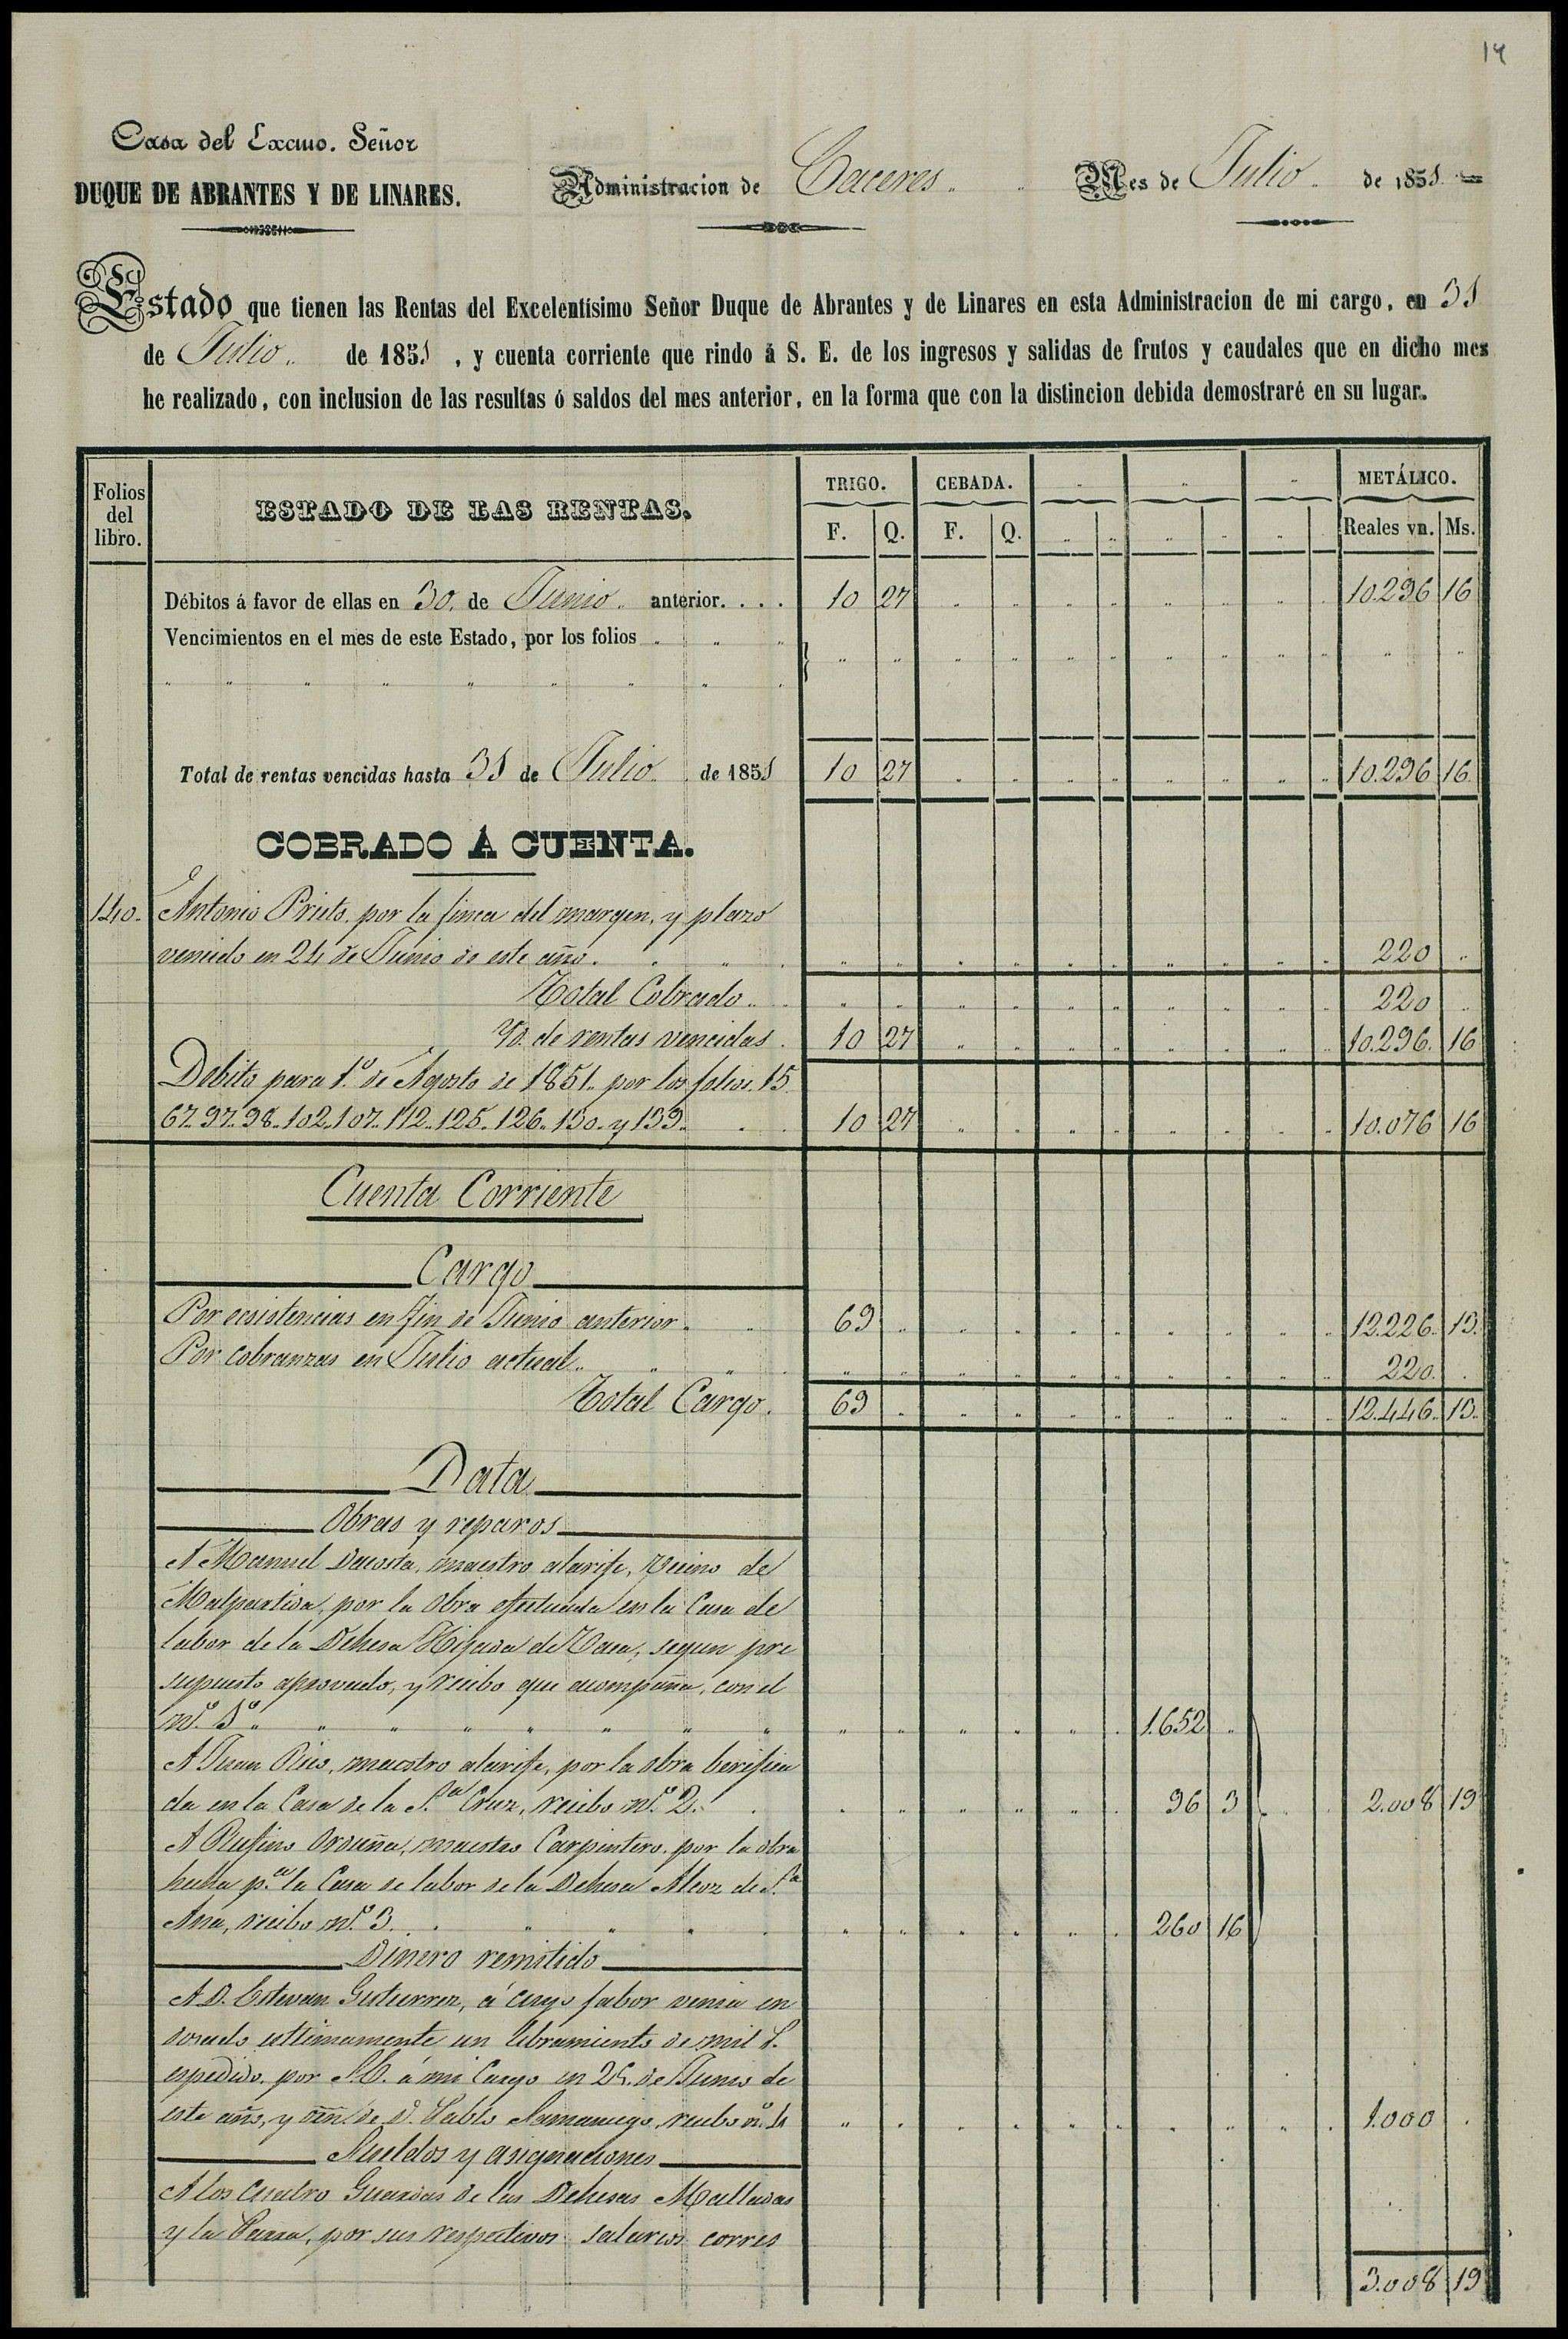 14
Casa del Excmo. Señor
DUQUE DE ABRANTES Y DE LINARES.
Administracion de Caceres
Mes de Julio de 1851
Estado que tienen las Rentas del Excelentísimo Señor Duque de Abrantes y de Linares en esta Administracion de mi cargo, en 31
de Julio de 1851, y cuenta corriente que rindo á S. E. de los ingresos y salidas de frutos y caudales que en dicho mes
he realizado, con inclusion de las resultas ó saldos del mes anterior, en la forma que con la distincion debida demostraré en su lugar.
Folios del libro.
ESTADO DE LAS RENTAS.
TRIGO. CEBADA. METÁLICO.
F. Q. F. Q. Reales vn. Ms.
Débitos á favor de ellas en 30 de Junio anterior.... 10 27 10.296 16
Vencimientos en el mes de este Estado, por los folios
Total de rentas vencidas hasta 31 de Julio de 1851 10 27 10.296 16
COBRADO Á CUENTA.
140. Antonio Prieto, por la finca del margen, y plazo
vencido en 24 de Junio de este año. 220
Total Cobrado 220
Yd. de rentas vencidas 10 27 10.296. 16
Debito para 1.º de Agosto de 1851. por los folios. 15.
67. 97. 98. 102. 107. 112. 125. 126. 130. y 139. 10 27 10.076 16
Cuenta Corriente
Cargo
Por ecsistencias en fin de Junio anterior. 69 12.226. 13.
Por cobranzas en Julio actual. 220.
Total Cargo. 69 12.446. 13.
Data
Obras y reparos
A Manuel Dacosta, maestro alarife, vecino de
Malpartida, por la obra efectuada en la Casa de
labor de la Dehesa Hijada de Vaca, segun pre
supuesto aprovado, y recibo que acompaña, con el
n.º 1.º 1.652
A Juan Rico, maestro alarife, por la obra berifica
da en la Casa de la S.ta Cruz, recibo n.º 2. 96 3 2.008 19
A Rufino Orduña, maestro Carpintero, por la obra
hecha p.ª la Casa de labor de la Dehesa de S.ta
Ana, recibo n.º 3. 260 16
Dinero remitido
A D. Estevan Gutierrez, á cuyo fabor venia en
dosado ultimamente un libramiento de mil
espedido, por S. E. á mi Cargo en 25. de Junio de
este año, y orñ. de D. Pablo Samaniego, recibo n.º 4 1.000
Sueldos y asignaciones
A los Cuatro Guardas de las Dehesas Malladas
y la Parra, por sus respectivos salarios corres
3.008 19